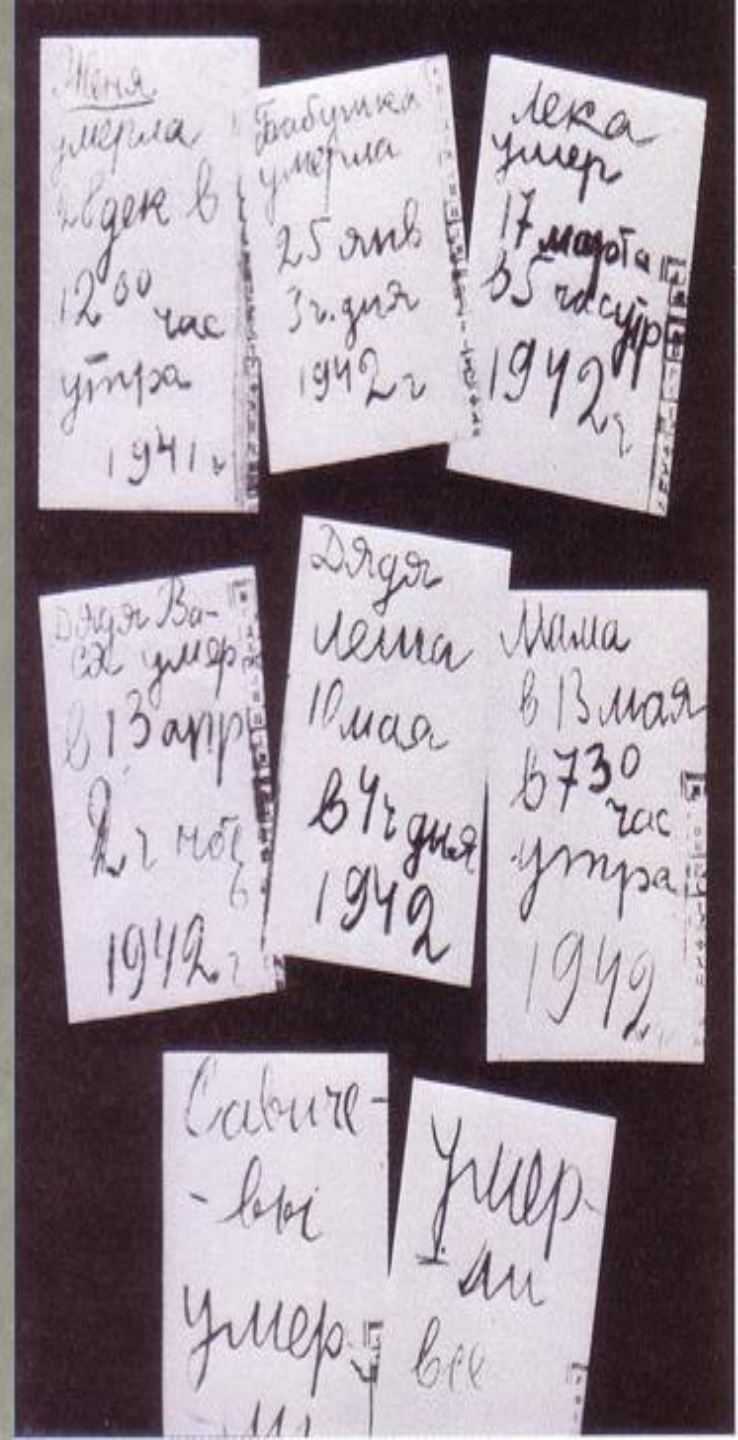 Женя
умерла
28 дек в
12 00
час
утра
1941 г
Бабушка
умерла
25 янв
3 ч. дня
1942 г
Лека
умер
17 марта
в 5 час утр
1942 г
Дядя Ва-
ся умер
в 13 апр
2 ч ноч
ь
1942 г
Дядя
Леша
10 мая
в 4 ч дня
1942
Мама
в 13 мая
в 7 30
час
утра
1942
Савиче-
-вы
умер-
-ли
Умер-
-ли
все